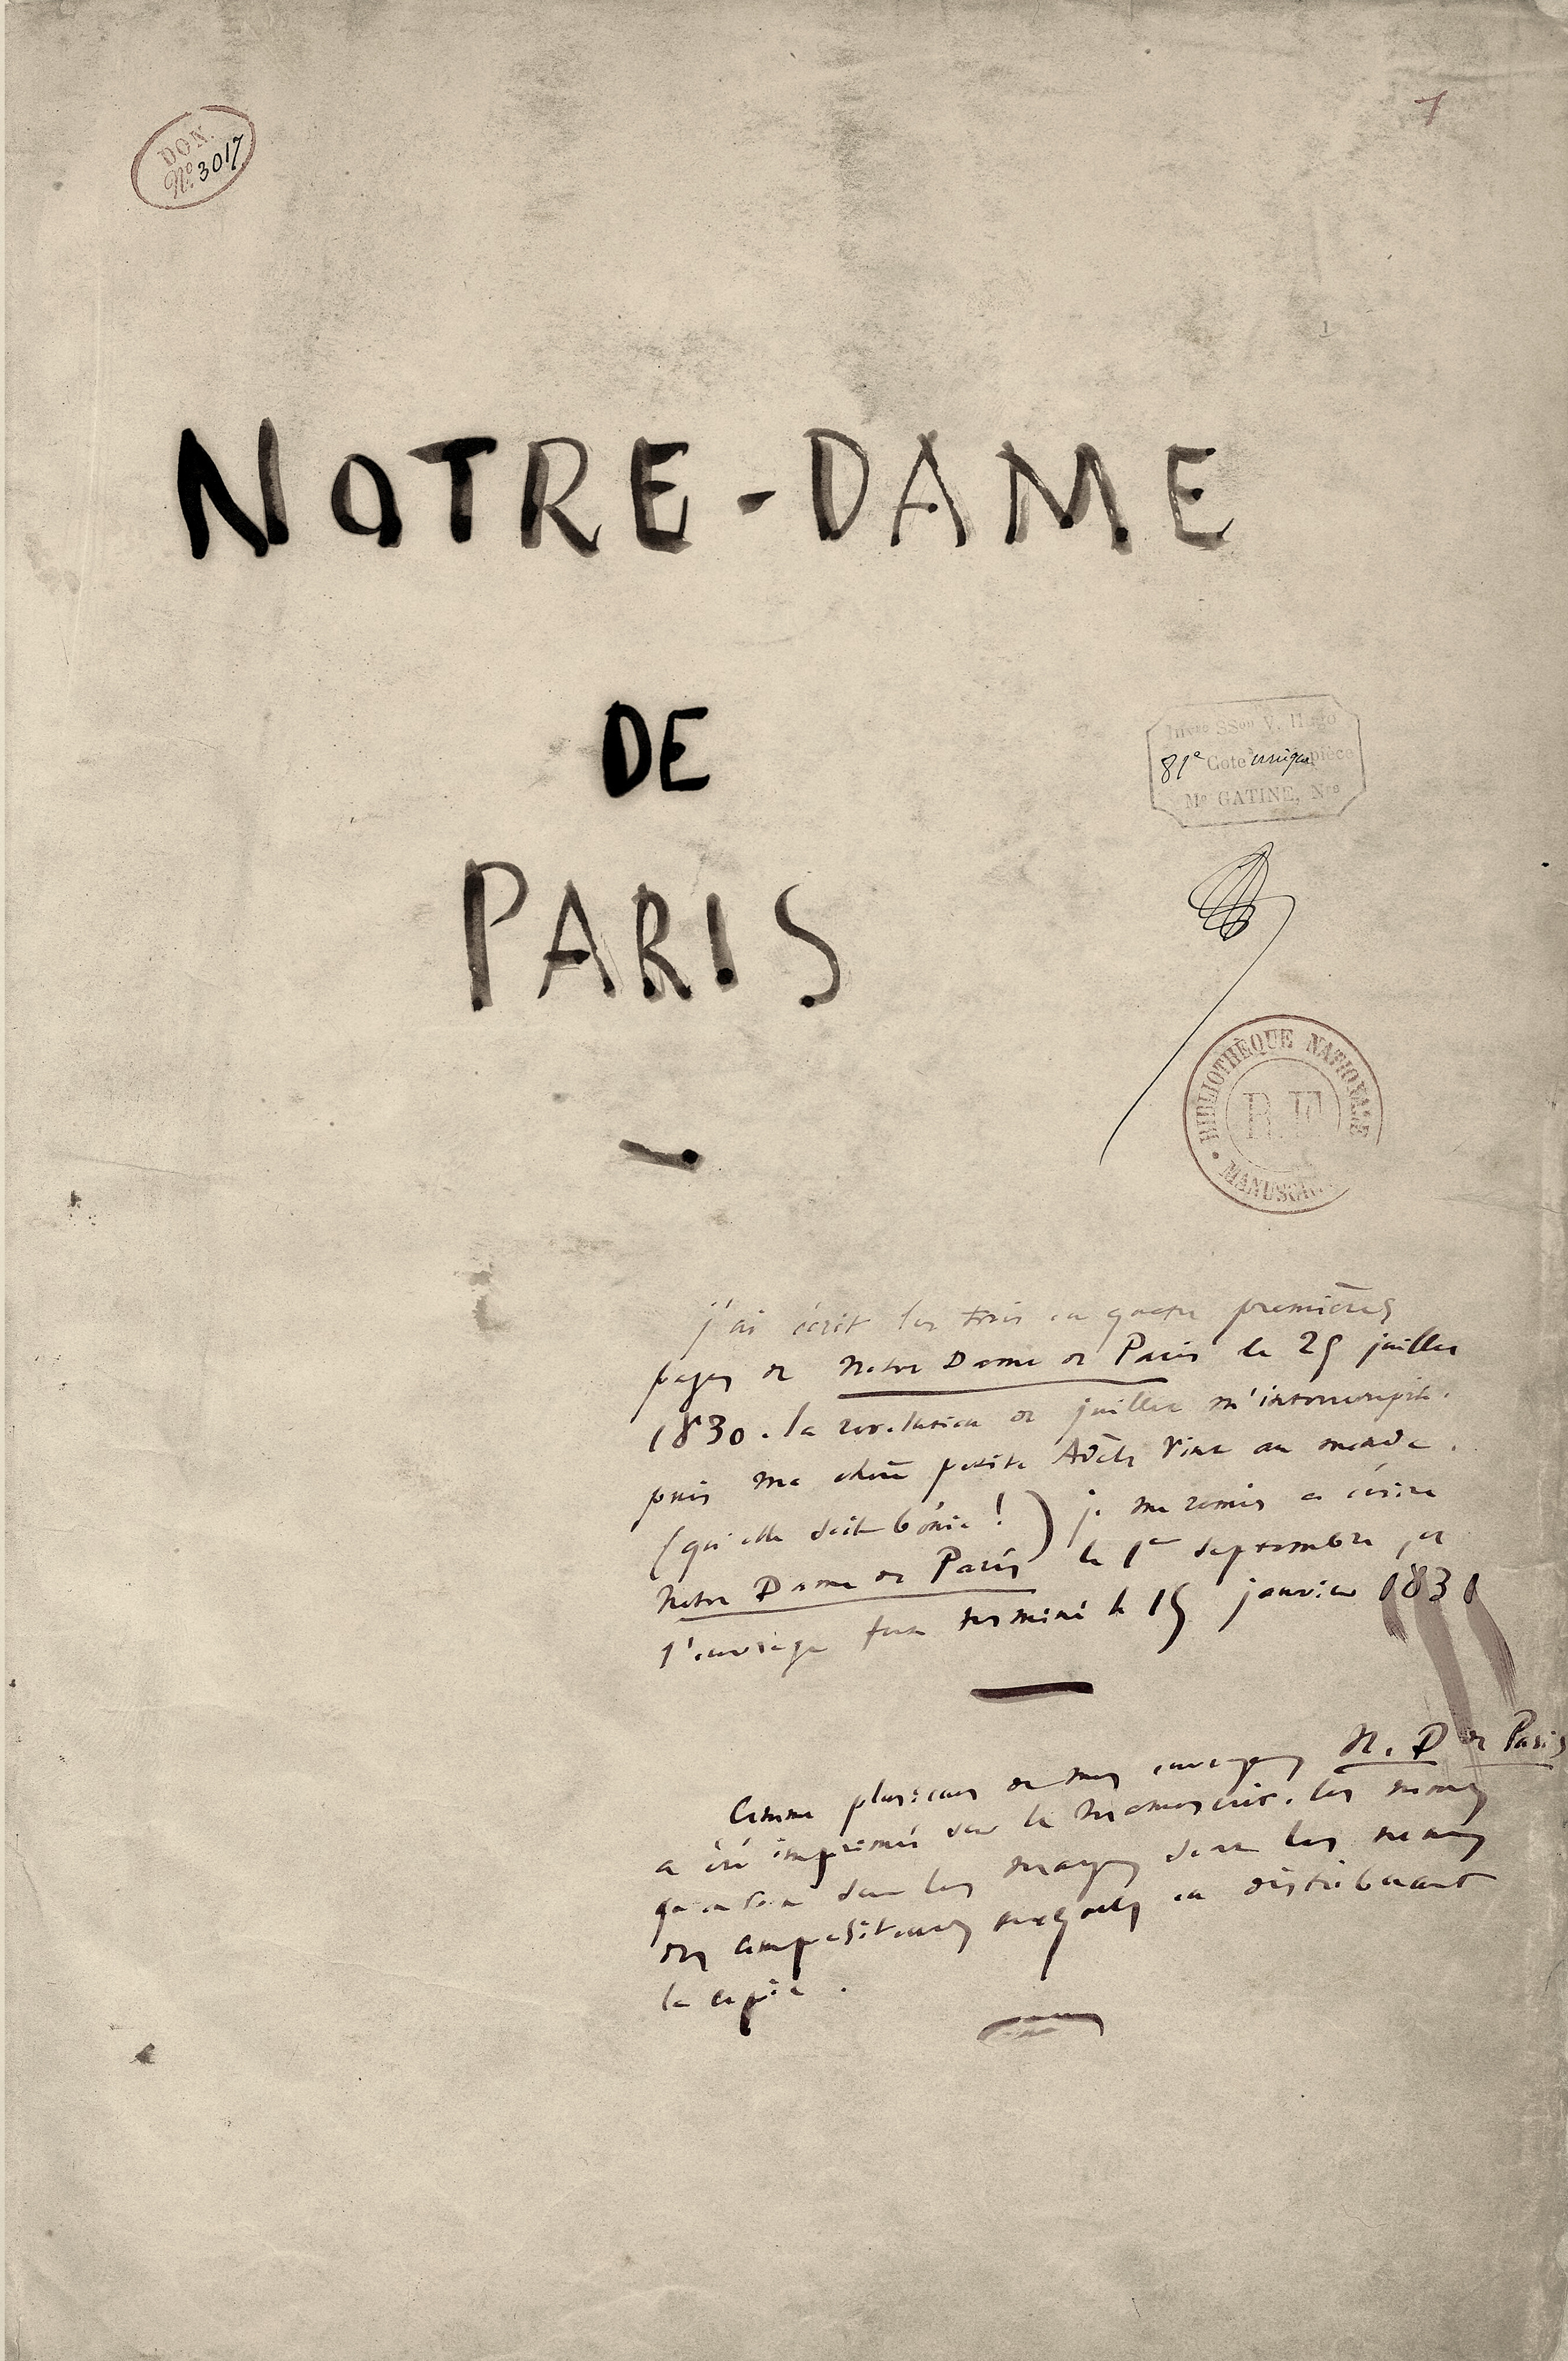 DON.
Nº 3017
1
1
NOTRE-DAME
DE
PARIS
Invre SSon V. Hugo
81e Cote unique pièce
Me GATINE, Nre
BIBLIOTHÈQUE NATIONALE
R.F.
MANUSCRITS
j'ai écrit les trois ou quatre premières
pages de Notre Dame de Paris le 25 juillet
1830. la révolution de juillet m'interrompit.
puis ma chère petite Adèle vint au monde.
(qu'elle soit bénie!) je me remis à écrire
Notre Dame de Paris le 1er septembre, et
l'ouvrage fut terminé le 15 janvier 1831
Comme plusieurs de mes ouvrages N. D de Paris
a été imprimé sur le manuscrit. les noms
qu'on voit sur les marges sont les noms
des compositeurs auxquels on distribuait
la copie.